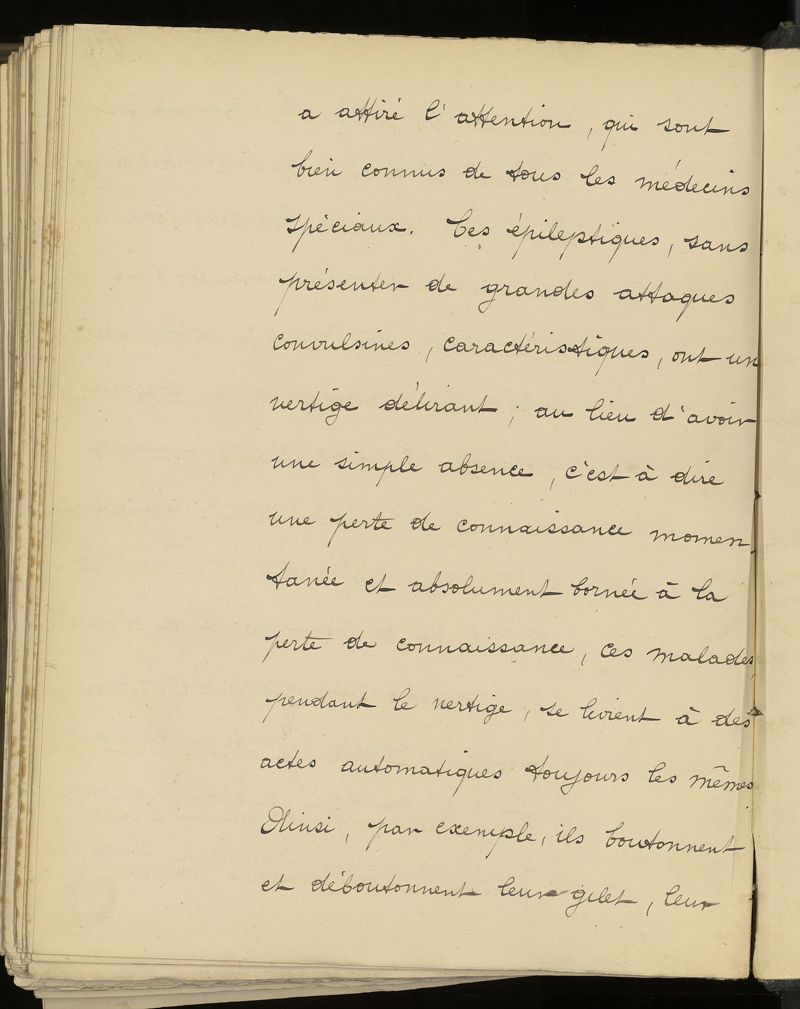 a attiré l'attention, qui sont
bien connus de tous les médecins
spéciaux. Ces épileptiques, sans
présenter de grandes attaques
convulsives, caractéristiques, ont un
vertige délirant ; au lieu d'avoir
une simple absence, c'est à dire
une perte de connaissance momen-
tanée et absolument bornée à la
perte de connaissance, ces malades,
pendant le vertige, se livrent à des
actes automatiques toujours les mêmes.
Ainsi, par exemple, ils boutonnent
et déboutonnent leur gilet, leur